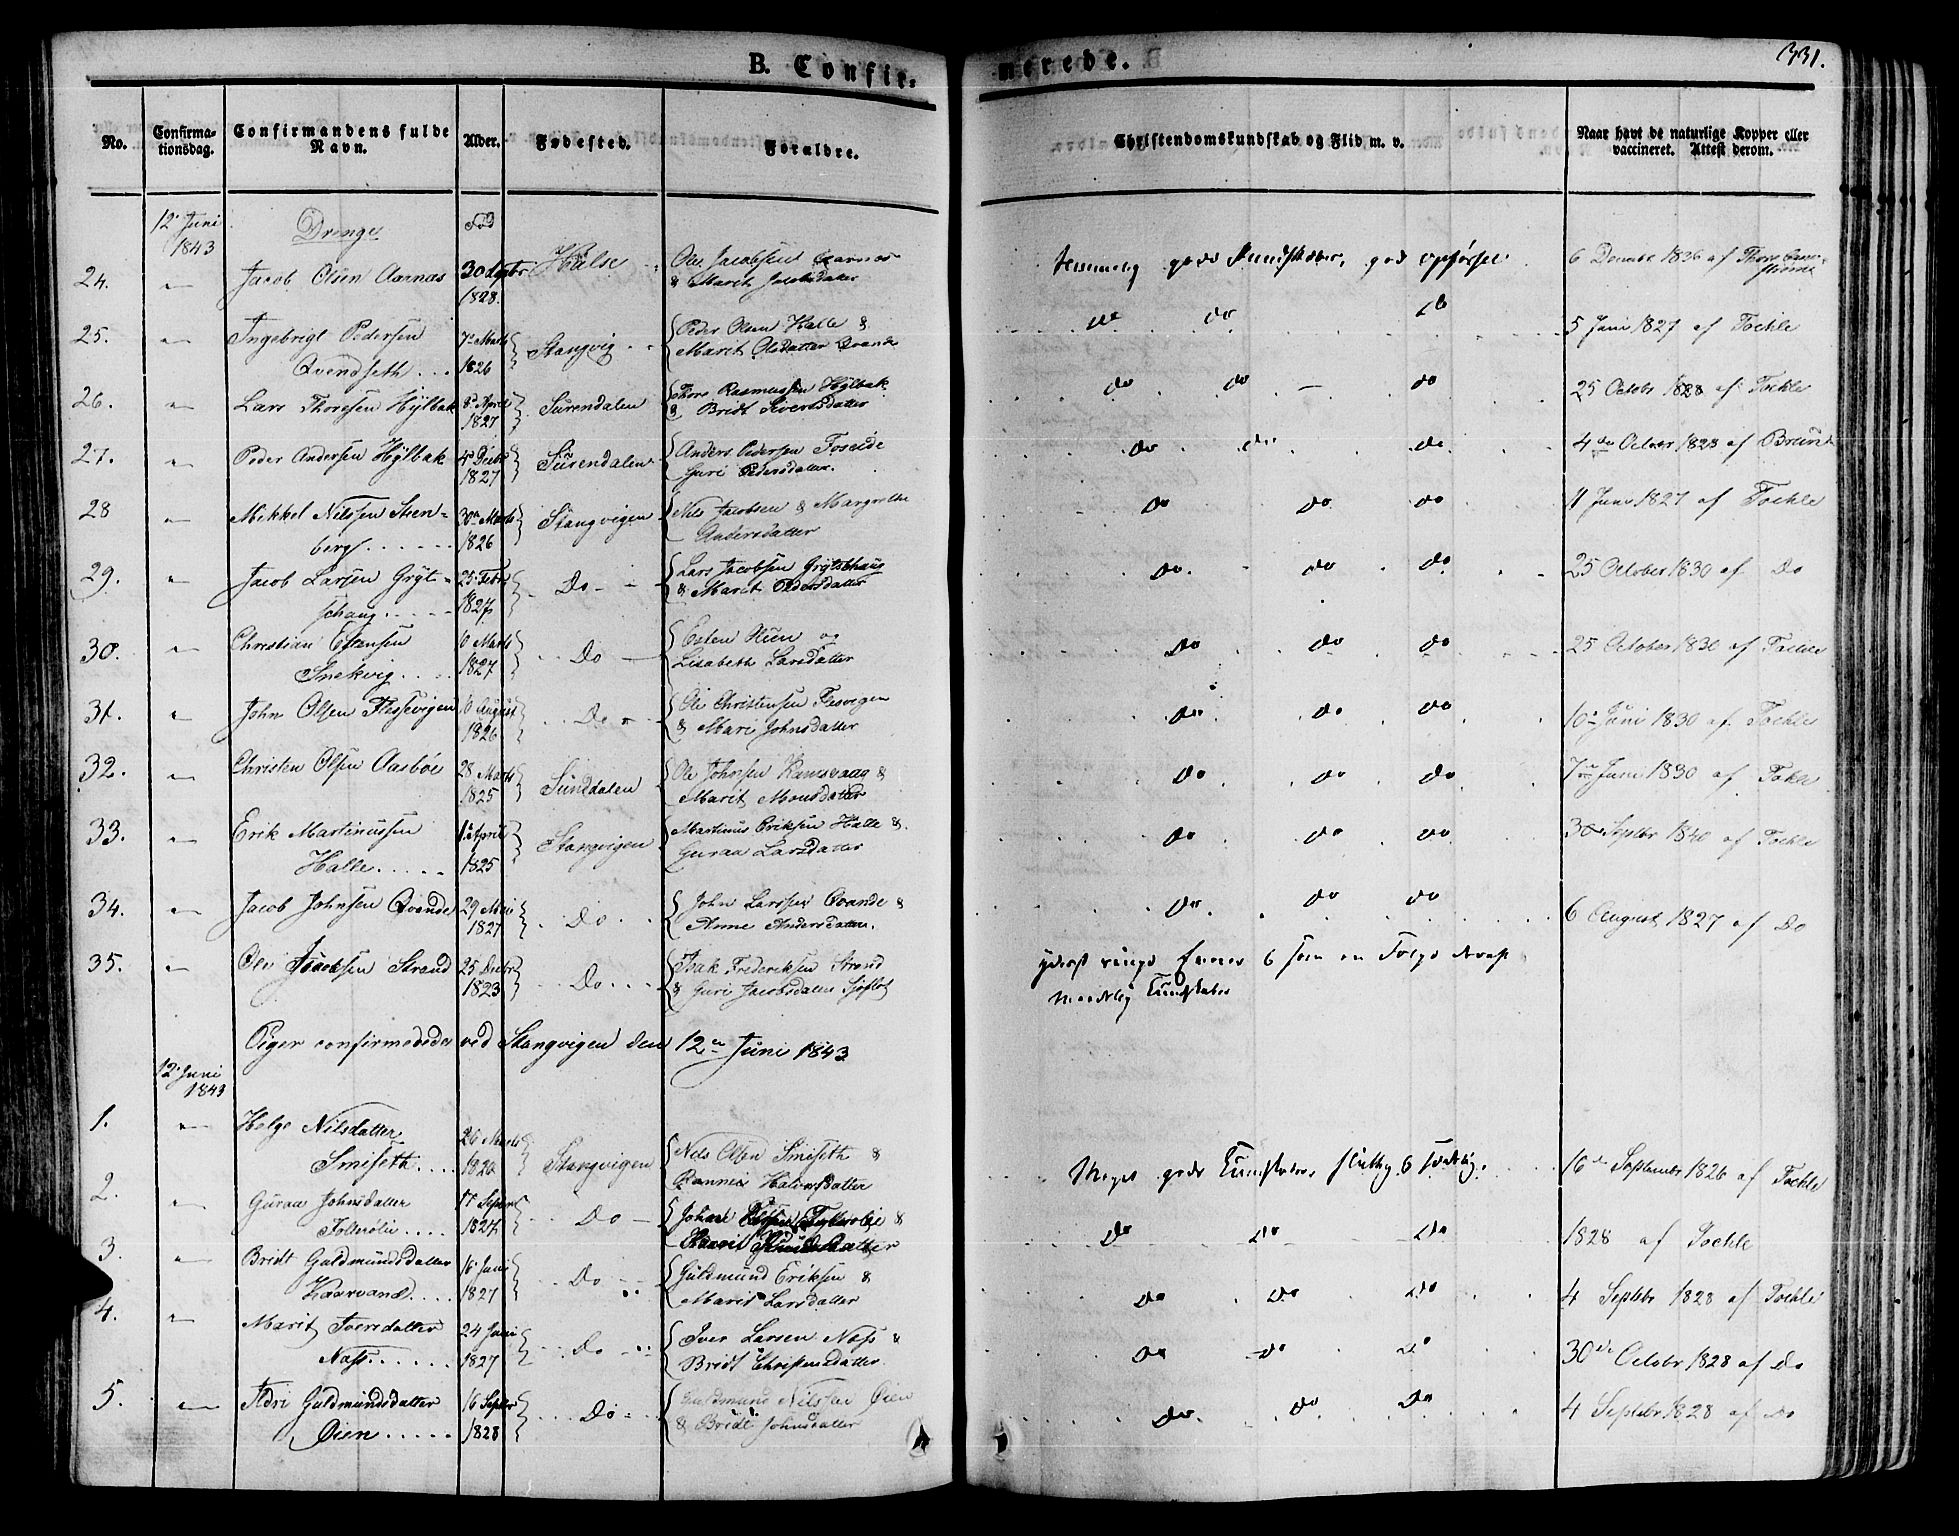 B. Confir-
merede.
331.
No.
Confirma-
tionsdag.
Confirmandens fulde
Navn.
Alder.
Fødested.
Forældre.
Christendomskundskab og Flid m. v.
Naar havt de naturlige Kopper eller
vaccineret. Attest derom.
12 Juni
1843
Drenge
Fød
24. " Jacob Olsen Aarnæs 30 1828. Halse Ole Jacobsen Aarnæs
& Marit Jacobsdatter
gode Kundskaber, god opførsel 6 1836 af
25. " Ingebrigt Pedersen
Qvendseth . . . 7 Marts
1826 Stangvig Peder Olsen Halle &
Marit Olsdatter Qvande
do do do 5 Juni 1827 af Tochle
26. " Lars Thoresen Hÿlbak 8 April
1827 Surendalen Thore Rasmussen Hÿlbak
& Bridt Sivertsdatter
do do – do 25 Octobr 1828 af Tochle
27. " Peder Andersen Hÿlbak 4 Decbr
1827 Sürendalen Anders Pedersen Foseide
Guri Pedersdatter.
do do do 4de Octobr 1828 af Brün
28 " Mikkel Nilssen Steen-
berg . . . . . . 30 Marts
1826 Stangvigen Nils Jacobsen & Margrethe
Andersdatter
do do do 11 Juni 1827 af Tochle
29. " Jacob Larsen Grÿt-
schaug . . . . . 25 Febr
1827 Do Lars Jacobsen Grÿtschaug
& Marit Pedersdatter
do. do do 25 October 1830 af Do
30. " Christian Estensen
Snekvig . . . . Marts
1827 Do Esten Olsen og
Lisabeth Larsdatter
do do do 25 October 1830 af Tochle
31. " John Olsen Flessevigen August
1826 Do Ole Christensen Flesvigen
& Mari Johnsdatter
do do do 10 Juni 1830 af Tochle
32. " Christen Olsen Aasbøe 28 Marts
1825 Sunddalen Ole Johnsen Ramsvaag &
Marit Monsdatter
do do do 7 Juni 1830 af Tokle
33. " Erik Martinussen
Halle . . . . . 1 April
1825 Stangvigen Martinus Eriksen Halle &
Guraa Larsdatter
do do do 30 Septbr 1840 af Tochle
34. " Jacob Johnsen Qvande 29 Mai
1827 Do John Larssen Qvande &
Anne Andersdatter.
do do do 6 August 1827 af Do
35. " Ole Isaksen Strand 25 Decbr
1823 Do Isak Frederiksen Strand
& Guri Jacobsdatter Sjøflot
yderst ringe Evner & som en Følge deraf
maadelig Kundskaber
Piger confirmerede ved Stangvigen den 12te Juni 1843
12 Juni
1843
1. " Helge Nilsdatter
Smiseth . . . . 26 Marts
Stangvigen Nils Olsen Smiseth &
Halvorsdatter
Meget gode Kundskaber flittig & sædelig. 16de September 1826 af Tochle
2. " Guraa Johnsdatter
17 Septbr
1827 Do
do do do 1828 af Tochle
3. " Bridt Guldmundsdatter
Kaarvand . . . . 16 Juni
1827 Do Güldmund Eriksen &
Marit Larsdatter
do do do 4 Septbr 1828 af Tochle
4. " Marit Iversdatter
Næss . . . . . 24 Juni
1827 Do Iver Larsen Næss &
Bridt Christensdatter
do do do 30de Octobr 1828 af Do
5. " Adri Guldmundsdatter
Øien . . . . . 16 Septbr
1828 Do Guldmund Nilssen Øien
& Bridt Johnsdatter
do do do 4 Septebr 1828 af Do